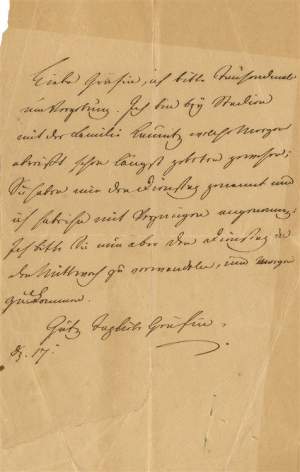 Liebe Gräfin, ich bitte Tausendmal
um Vergebung. Ich bin bey Stadion
mit der Familie welche Morgen
abreißt schon längst gebeten gewesen;
Sie haben mir den Dienstag genannt und
ich habe ihn mit Vergnügen angenommen.
Ich bitte Sie nun aber den Dienstag in
den Mittwoch zu verwandeln, und Morgen
zu kommen.
Gräfin.
17